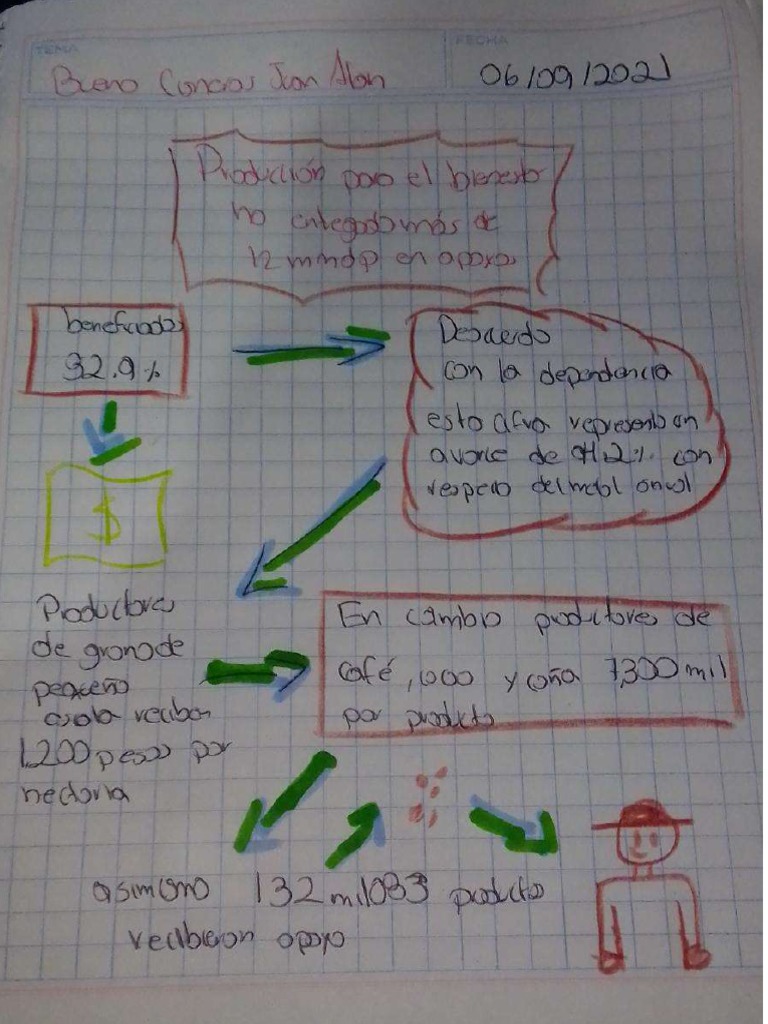 TEMA
FECHA
Bueno Concios Juan Alan
06/09/2021
Producción para el bienestar
ha entregado más de
12 mmdp en apoyos
beneficiados
32.9%
Deacuerdo
con la dependencia
esta cifra representa un
avance de 91.2% con
respecto del metal anual
$
Productores
de grano de
pequeño
escala reciben
1,200 pesos por
hectaria
En cambio productores de
café ,000 y caña 7,300 mil
por producto
asimismo 132 mil 033 producto
recibieron apoyo